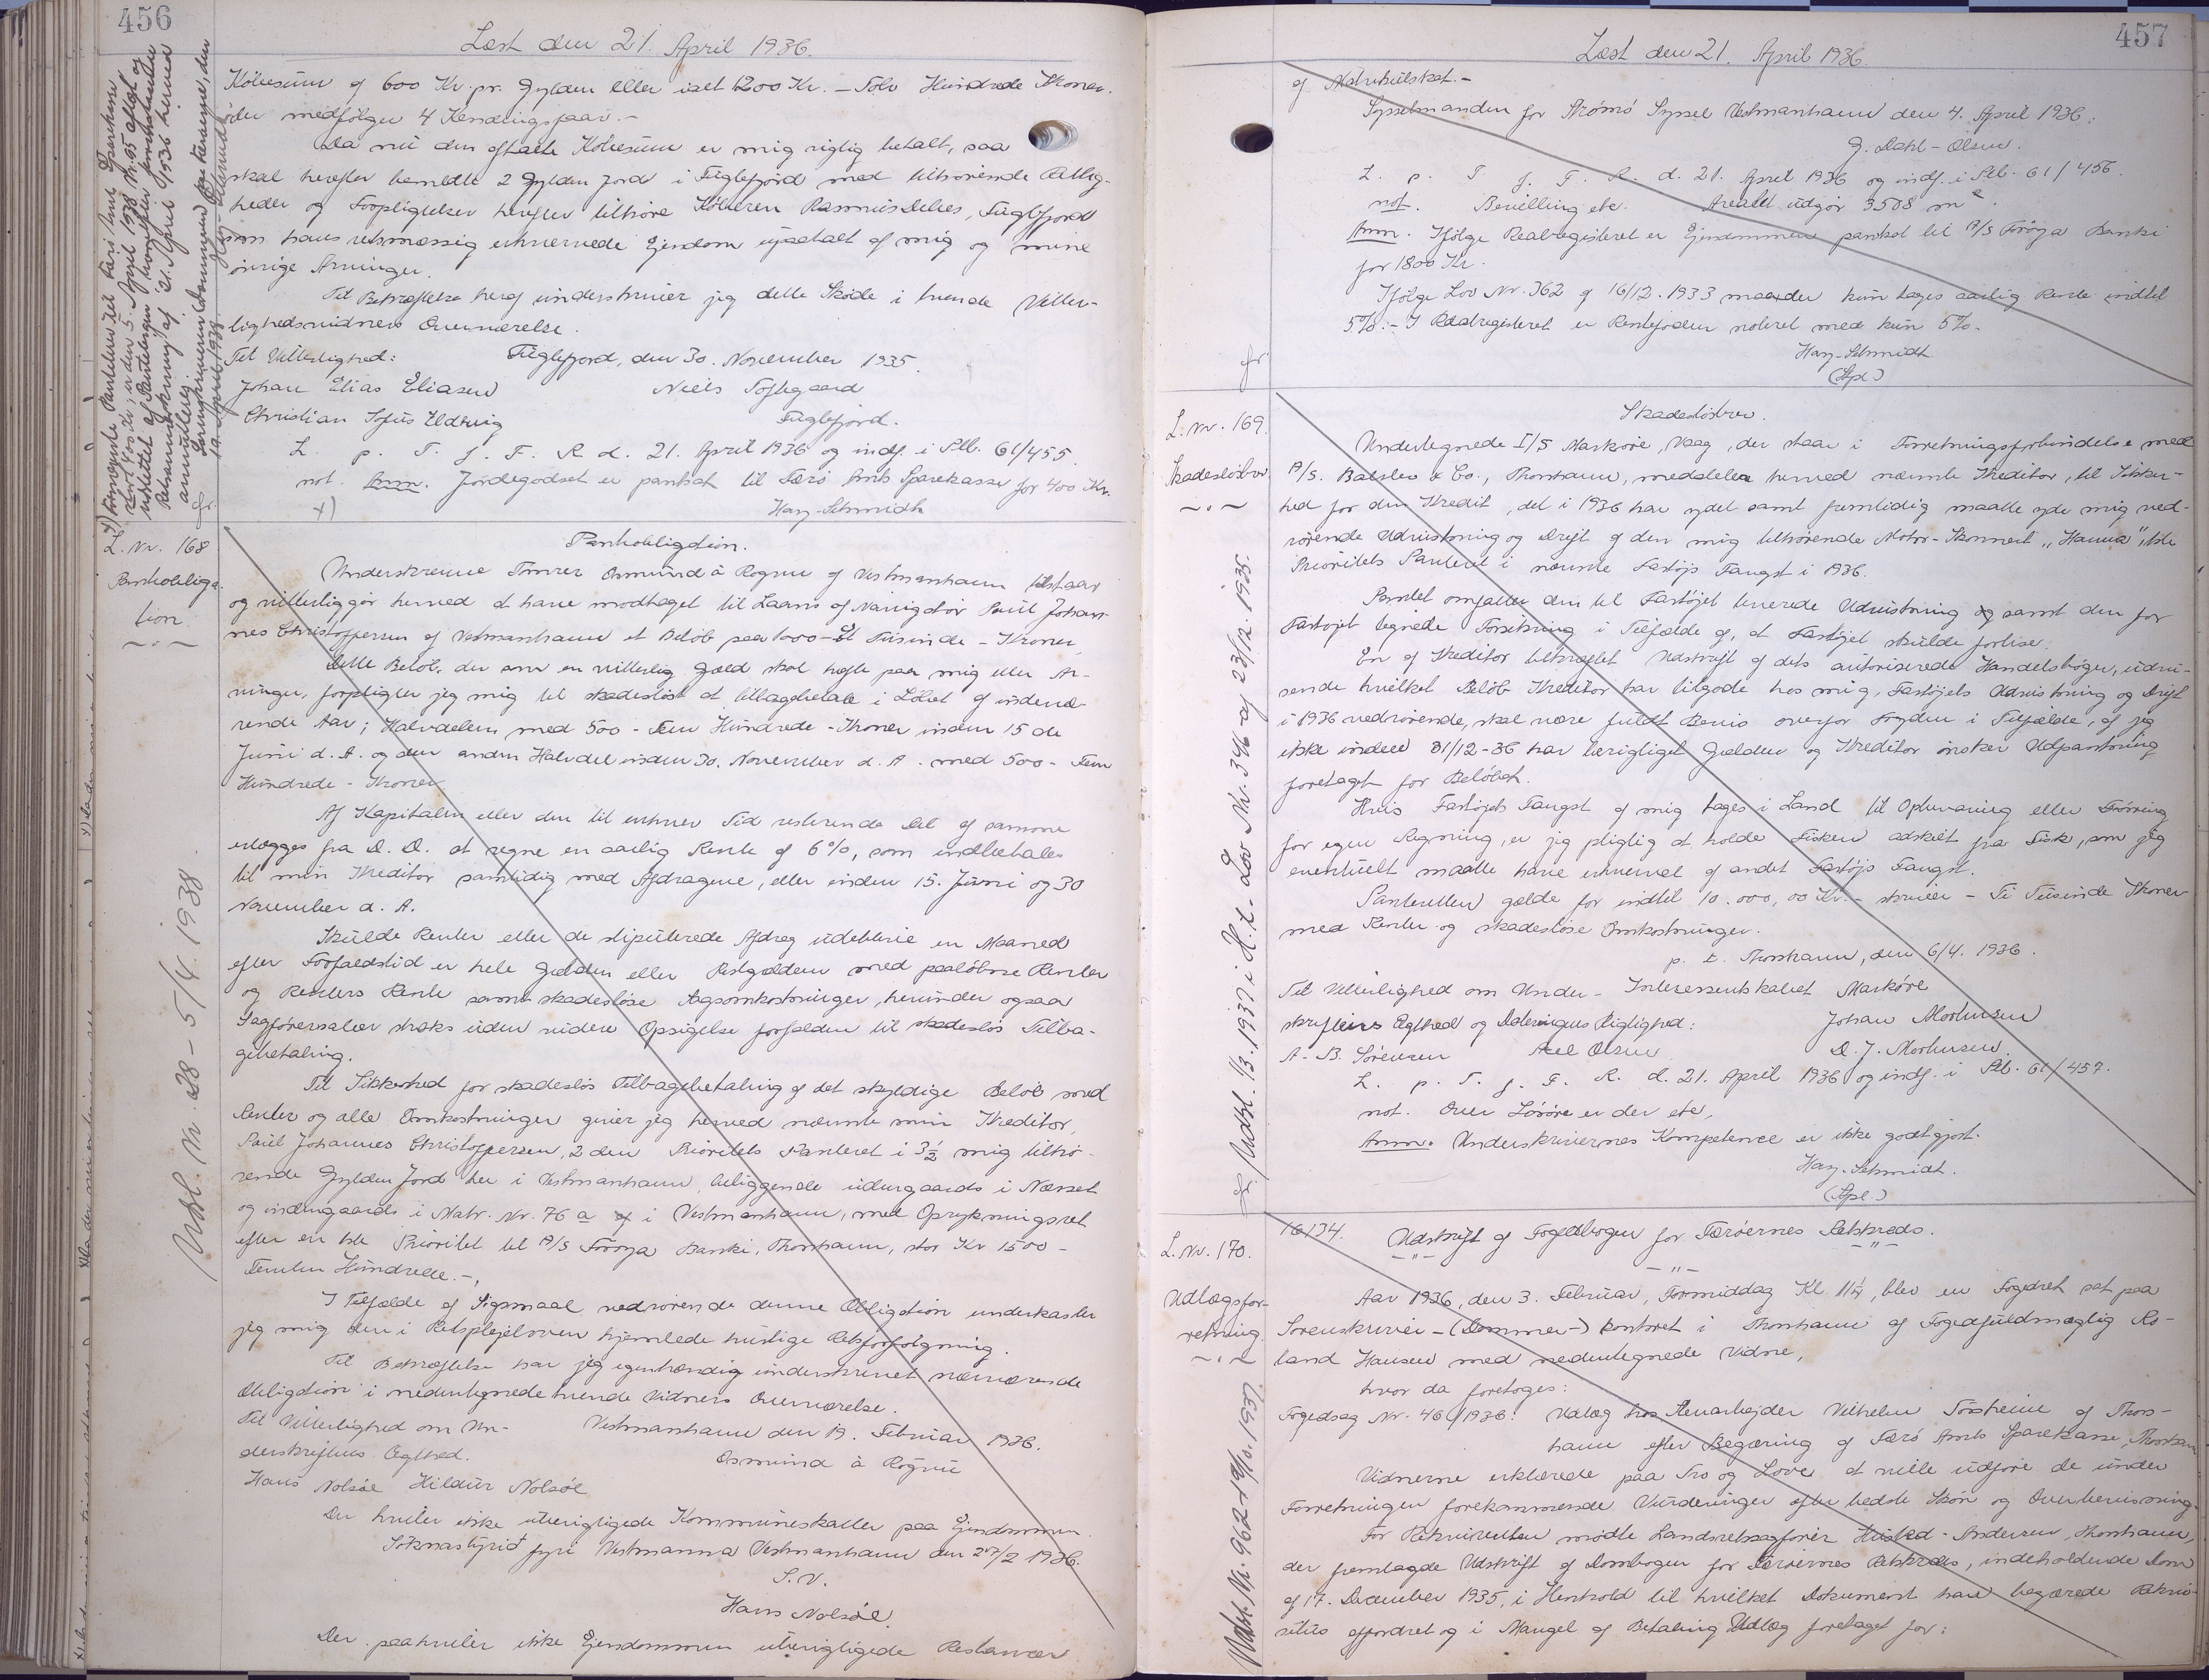 456
Læst den 21. April 1936.
Købesum af 600 Kr. pr. Gylden eller ialt 1200 Kr. - Tolv Hundrede Kroner.
der medfølger 4 Kendingsfaar.-
Da nu den aftalte Købesum er mig rigtig betalt, saa
skal herefter bemeldte 2 Gylden Jord i Fuglefjord med tilhørende Rettig-
heder og Forpligtelser herefter tilhøre Køberen Rasmus Debes, Fuglefjord
som hans retsmæssig erhvervede Ejendom upaatalt af mig og mine
øvrige Arvinger.
Til Bekræftelse heraf underskriver jeg dette Skøde i tvende Vitter-
lighedsvidners Overværelse.
Til Vitterlighed: Fuglefjord, den 30. November 1935.
Johan Elias Eliasen Niels Toftegaard
Christian Sofus Uldvrig Fuglefjord.
L. p. T. f. F. R. d. 21. April 1936 og indf. i Ptb. 61/455.
not. Anm. Jordegodset er pantsat til Færø Amts Sparekasse for 400 Kr.
x) Hay-Schmidt
x) Foranførte Panteret til Færø Amts Sparekasse
stort 400 Kr., er den 5. April 1938 Nr. 25 aflyst og
udslettet af Pantebogen hvorefter foranstaaende
Retsanmærkning af 21. April 1936 herved
annulleres.
Sorenskriveren (Dommeren) paa Færøerne, den
19. April 1938
L. Nr. 168
Pantobliga-
tion
Udsl. Nr. 28 - 5/4. 1938
Pantobligation.
Underskrevne Tømrer Osmund à Rógvu af Vestmanhavn tilstaar
og vitterliggør herved at have modtaget til Laans af Navigatør Poul Johan-
nes Christoffersen af Vestmanhavn et Beløb paa 1000 - Et Tusinde - Kroner
Dette Beløb, der som en vitterlig Gæld skal hæfte paa mig eller Ar-
vinger, forpligter jeg mig til skadesløst at tilbagebetale i Løbet af indevæ-
rende Aar; Halvdelen med 500 - Fem Hundrede - Kroner inden 15 de
Juni d. A. og den anden Halvdel inden 30. November d. A. med 500 - Fem
Hundrede - Kroner
Af Kapitalen eller den til enhver Tid resterende Del af samme
erlægges fra D. D. at regne en aarlig Rente af 6%, som indbetales
til min Kreditor samtidig med Afdragene, eller inden 15. Juni og 30
November d. A.
Skulde Renter eller de stipulerede Afdrag udeblive en Maaned
efter Forfaldstid er hele Gælden eller Restgælden med paaløbne Renter
og Renters Rente samt skadesløse Sagsomkostninger, herunder ogsaa
Sagførersalær straks uden videre Opsigelse forfalden til skadesløs Tilba-
gebetaling.
Til Sikkerhed for skadesløs Tilbagebetaling af det skyldige Beløb med
Renter og alle Omkostninger giver jeg herved nævnte min Kreditor,
Poul Johannes Christoffersen, 2 den Prioritets Panteret i 3½ mig tilhø-
rende Gylden Jord her i Vestmanhavn, beliggende udengaards i Næsset
og indengaards i Matr. Nr. 76 a i Vestmanhavn, med Oprykningsret
efter en 1ste Prioritet til A/S Føroya Banki, Thorshavn, stor Kr 1500 -
Femten Hundrede.-,
I Tilfælde af Søgsmaal vedrørende denne Obligation underkaster
jeg mig den i Retsplejeloven hjemlede hurtige Retsforfølgning.
Til Bekræftelse har jeg egenhændig underskrevet nærværende
Obligation i nedentegnede tvende Vidners Overværelse.
Til Vitterlighed om Un- Vestmanhavn den 19. Februar 1936.
derskriftens Ægthed. Osmund à Rógvu
Hans Nolsøe Hildur Nolsøe
Der hviler ikke uberigtigede Kommuneskatter paa Ejendommen.
Sóknastýrið fyri Vestmanna Vestmanhavn den 27/2 1936.
S. V.
Hans Nolsøe.
Der paahviler ikke Ejendommen uberigtigede Restancer
457
Læst den 21. April 1936.
af Matrikulskat.-
Sysselmanden for Strømø Syssel Vestmanhavn den 4. April 1936.
J. Dahl-Olsen.
L. p. T. f. F. R. d. 21. April 1936 og indf. i Ptb. 61/456.
not. Bevilling etc. Arealet udgør 3508 m².
Anm. Ifølge Realregisteret er Ejendommen pantsat til A/S Føroya Banki
for 1800 Kr.
Ifølge Lov Nr. 362 af 16/12. 1933 maa der kun tages aarlig Rente indtil
5%.- I Realregisteret er Rentefoden noteret med kun 5%.
Hay-Schmidt
L. Nr. 169.
Skadesløsbrev.
Udsl. 1/3. 1937 i H. t. Lov Nr. 346 af 23/12. 1935.
Skadesløsbrev.
Undertegnede I/S Marköre, Vaag, der staar i Forretningsforbindelse med
A/S. Balslev & Co., Thorshavn, meddeler herved nævnte Kreditor, til Sikker-
hed for den Kredit, det i 1936 har ydet samt fremtidig maatte yde mig ved-
rørende Udrustning og Drift af den mig tilhørende Motor-Skonnert "Hanna", 1ste
Prioritets Panteret i nævnte Fartøjs Fangst i 1936.
Pantet omfatter den til Fartøjet leverede Udrustning samt den for
Fartøjet tegnede Forsikring i Tilfælde af, at Fartøjet skulde forlise.
En af Kreditor bekræftet Udskrift af dets autoriserede Handelsbøger, udvi-
sende hvilket Beløb Kreditor har tilgode hos mig, Fartøjets Udrustning og Drift
i 1936 vedrørende, skal være fuldt Bevis overfor Fogden i Tilfælde, af jeg
ikke inden 31/12-36 har berigtiget Gælden og Kreditor ønsker Udpantning
foretaget for Beløbet.
Hvis Fartøjets Fangst af mig tages i Land til Opbevaring eller Tørring
for egen Regning, er jeg pligtig at holde Fisken adskilt fra Fisk, som jeg
eventuelt maatte have erhvervet af andet Fartøjs Fangst.
Panteretten gælde for indtil 10.000,00 Kr. - skriver - Ti Tusinde Kroner
med Renter og skadesløse Omkostninger.
p. t. Thorshavn, den 6/4. 1936.
Til Vitterlighed om Under- Interessentskabet Marköre
skriftens Ægthed og Dateringens Rigtighed: Johan Mortensen
A. B. Sörensen Axel Olsen D. J. Mortensen.
L. p. T. f. F. R. d. 21. April 1936 og indf. i Ptb. 61/457.
not. Over Løsøre er der etc,
Anm. Underskrivernes Kompetence er ikke godtgjort.
Hay-Schmidt.
L. Nr. 170.
Udlægsfor-
retning.
16134. Udskrift af Fogedbogen for Færøernes Retskreds.
Aar 1936, den 3. Februar, Formiddag Kl. 11¼, blev en Fogedret sat paa
Sorenskriver-(Dommer-) kontoret i Thorshavn af Fogedfuldmægtig Ro-
land Hansen med nedentegnede Vidne,
hvor da foretoges:
Fogedsag Nr. 46/1936: Udlæg hos Stenarbejder Vilhelm Torsheim af Thors-
havn efter Begæring af Færø Amts Sparekasse, Thorshavn
Vidnerne erklærede paa Tro og Love at ville udføre de under
Forretningen forekommende Vurderinger efter bedste Skøn og Overbevisning.
For Rekvirenten mødte Landsretssagfører Husted-Andersen, Thorshavn,
der fremlagde Udskrift af Dombogen for Færøernes Retskreds, indeholdende Dom
af 17. December 1935, i Henhold til hvilket Dokument han begærede Rekvi-
situs opfordret og i Mangel af Betaling Udlæg foretaget for: